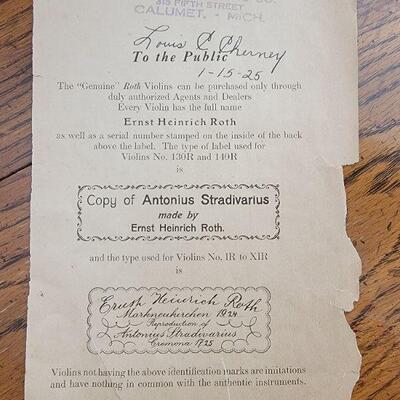 315 FIFTH STREET
CALUMET, - MICH.
Louis C Cherney
To the Public
1-15-25
The "Genuine" Roth Violins can be purchased only through
duly authorized Agents and Dealers
Every Violin has the full name
Ernst Heinrich Roth
as well as a serial number stamped on the inside of the back
above the label. The type of label used for
Violins No. 130R and 140R
is
Copy of Antonius Stradivarius
made by
Ernst Heinrich Roth.
and the type used for Violins No. IR to XIR
is
Ernst Heinrich Roth
Markneukirchen 1924
Reproduction of
Antonius Stradivarius
Cremona 1725
Violins not having the above identification marks are imitations
and have nothing in common with the authentic instruments.